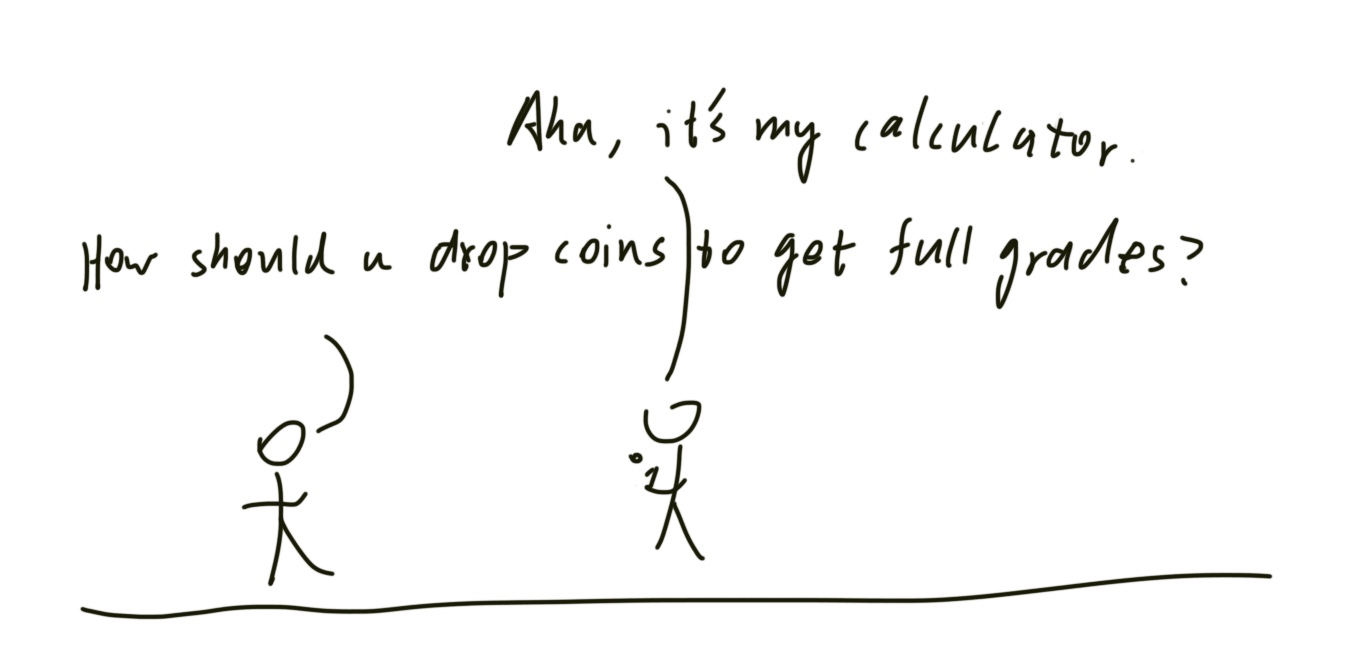 Aha, it's my calculator.
How should u drop coins to get full grades?